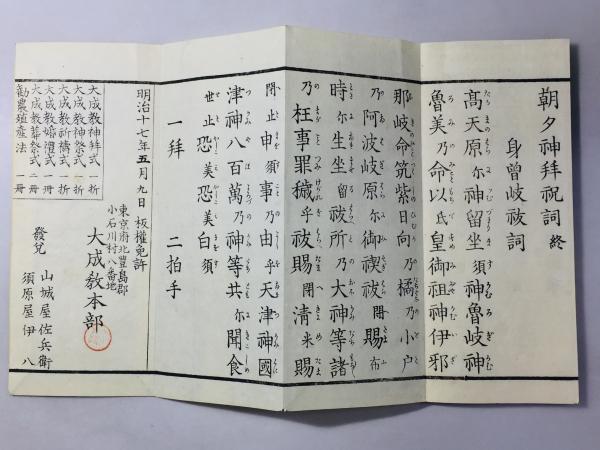 朝夕神拜祝詞 終
身曾岐祓詞
高天原尓神留坐須神魯岐神
魯美乃命以氐皇御祖神伊邪
那岐命筑紫日向乃橘乃小戸
乃阿波岐原尓御禊祓閇賜布
時尓生坐留祓所乃大神等諸
乃枉事罪穢乎祓賜閇淸米賜
閇止申須事乃由乎天津神國
津神八百萬乃神等共尓聞食
世止恐美恐美白須
一拜 二拍手
明治十七年五月九日板權免許
東京府北豊島郡
小石川村八番地
大成敎本部
大成敎神拜式 一折
大成敎神祭式 一折
大成敎祈禱式 一折
大成敎婚禮式 一冊
大成敎葬祭式 二冊
勸農殖産法 一冊
發兌 山城屋佐兵衛
須原屋伊八